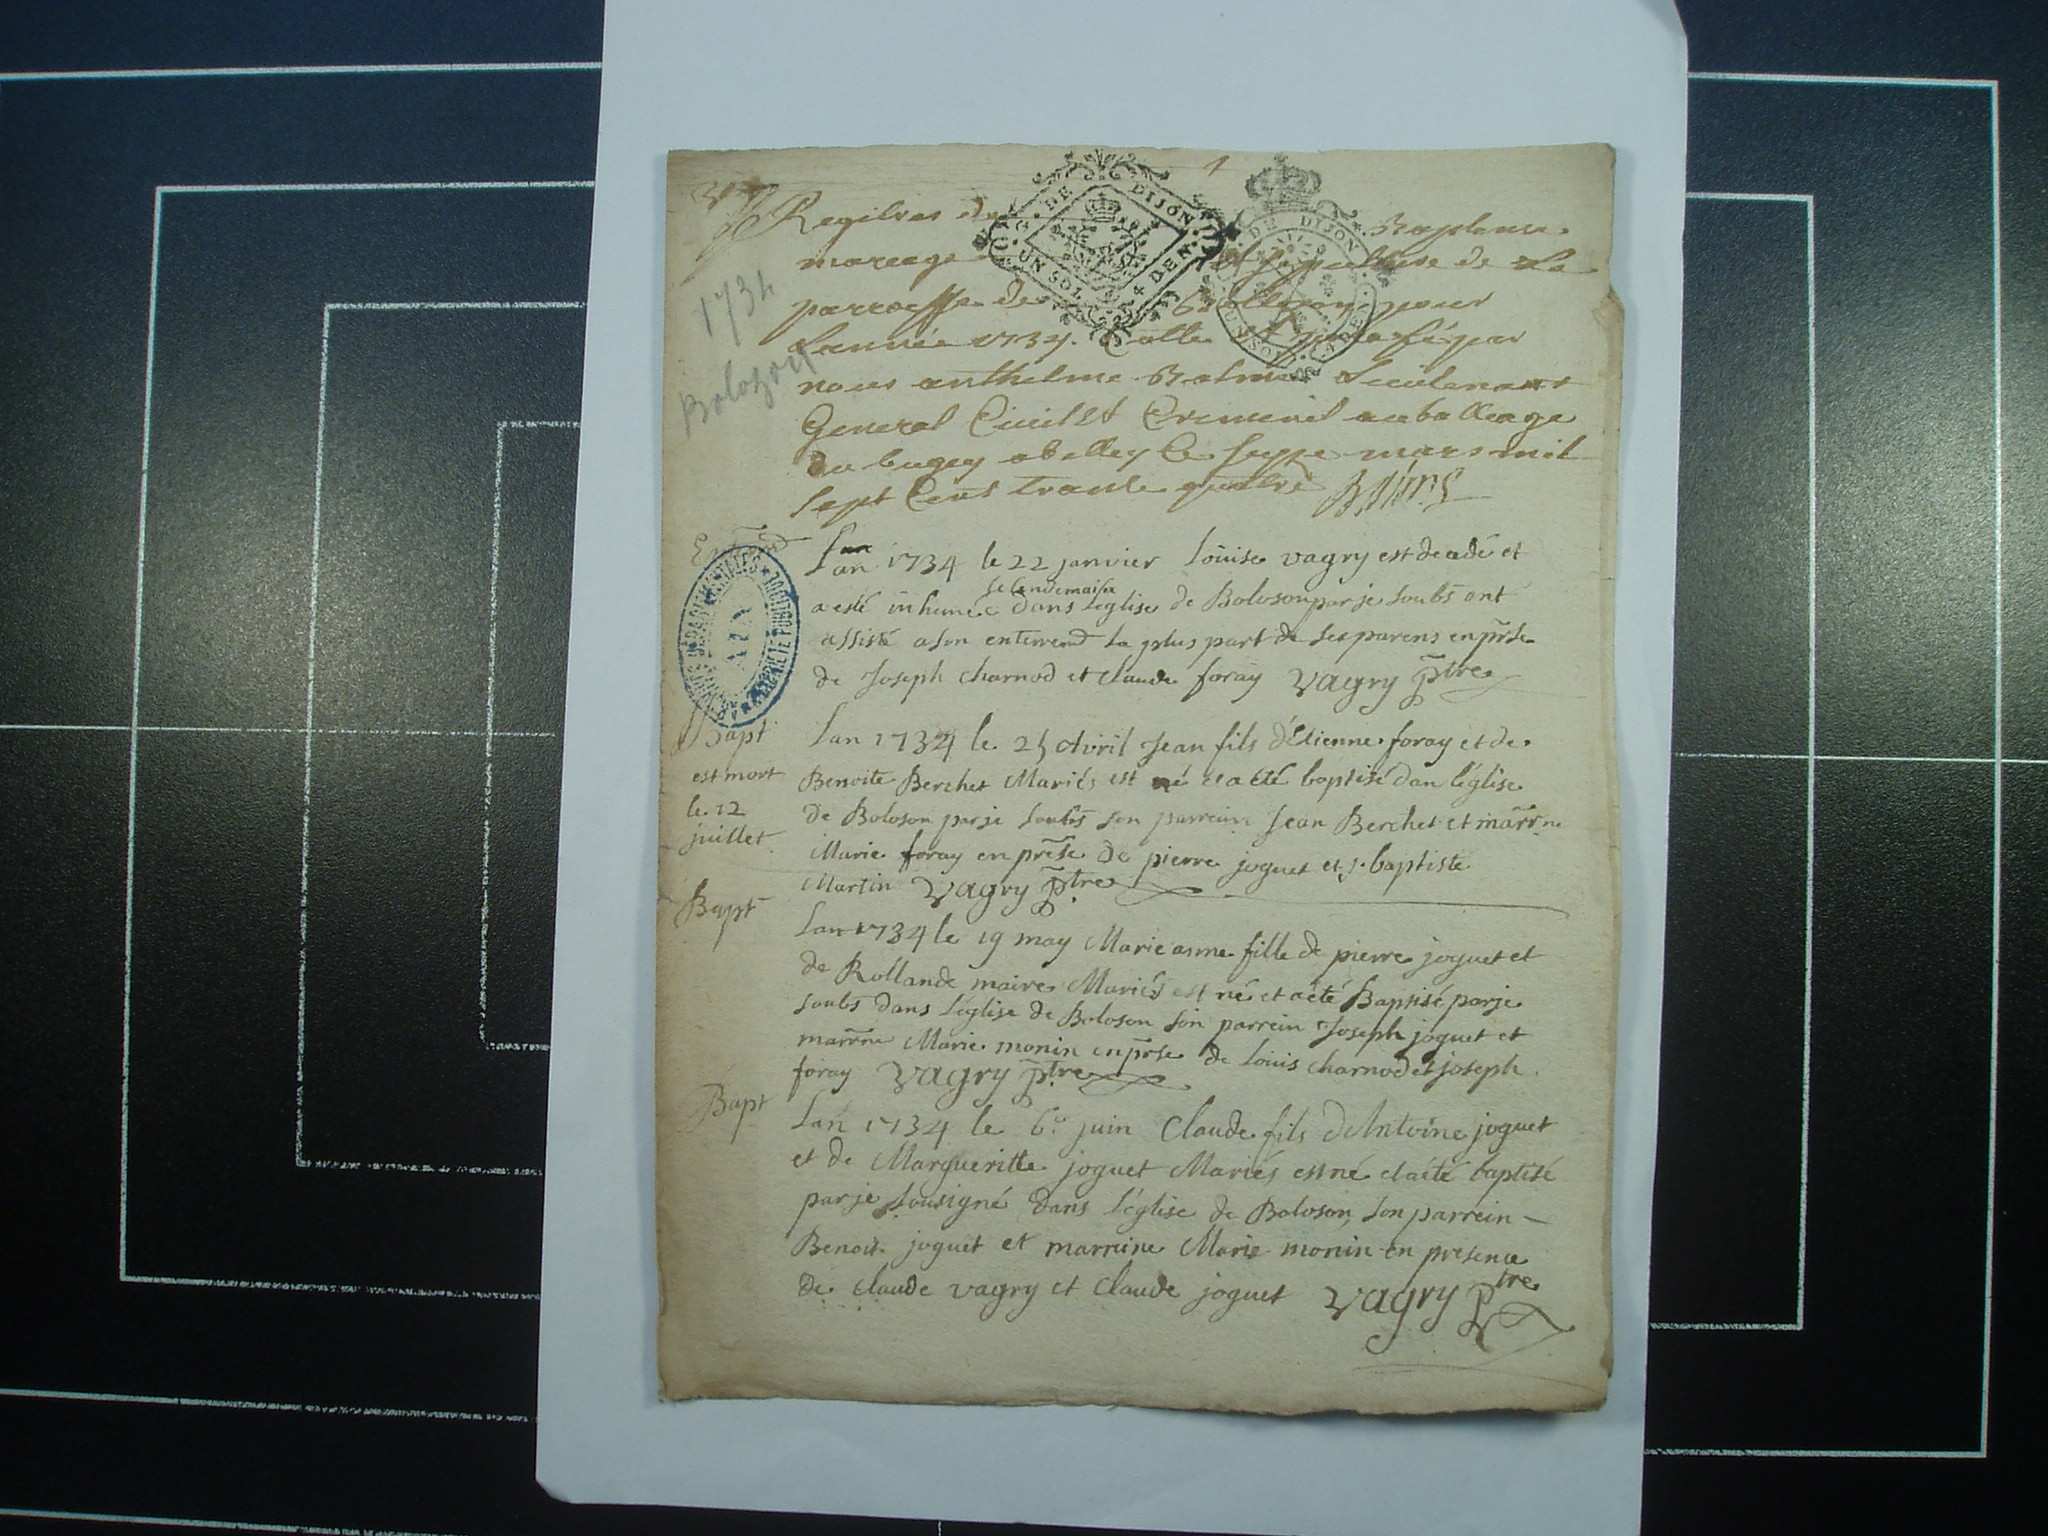 1
Registres de Baptesme
mareage et sepulture de La
parroesse de Bollozon pour
Lannée 1734. Cotté et paraffé par
nous anthelme Balme Lieutenant
General Civil et Creminel au balleage
du bugey a belley le sezze mars mil
sept Cens trante quattre
G. DE DIJON
UN SOL 4 DEN.
DE DIJON
UN SOL 4 DEN
1734
Bolozon
ARCHIVES DÉPARTEMENTALES
AIN
PROPRIÉTÉ PUBLIQUE
Lan 1734 le 22 janvier Loüise vagry est decadé et
le lendemain
a esté inhumée dans léglise de Boloson par je soubs ont
assisté a son enterremt la plus part de ses parens en prse
de Joseph charnod et claude foray Vagry ptre
Bapt
est mort
le 12
juillet
Lan 1734 le 25 Avril Jean fils d'Etienne foray et de
Benoite Berchet Mariés est né et a eté baptisé dan léglise
de Boloson par je soubs son parrein Jean Berchet et marrne
Marie foray en prese de pierre joguet et j. baptiste
Martin Vagry ptre
Bapt
Lan 1734 le 19 may Marie anne fille de pierre joguet et
de Rollande maire Mariés est né et a eté Baptisé par je
soubs dans léglise de Boloson son parrein Joseph joguet et
marrne Marie monin en prse de Louis charnod et joseph
foray Vagry ptre
Bapt
Lan 1734 le 6e juin Claude fils d'Antoine joguet
et de Margueritte joguet Mariés est né et a eté baptisé
par je sousigné dans l'église de Boloson, son parrein
Benoit joguet et marreine Marie monin en presence
de claude vagry et Claude joguet Vagry Ptre